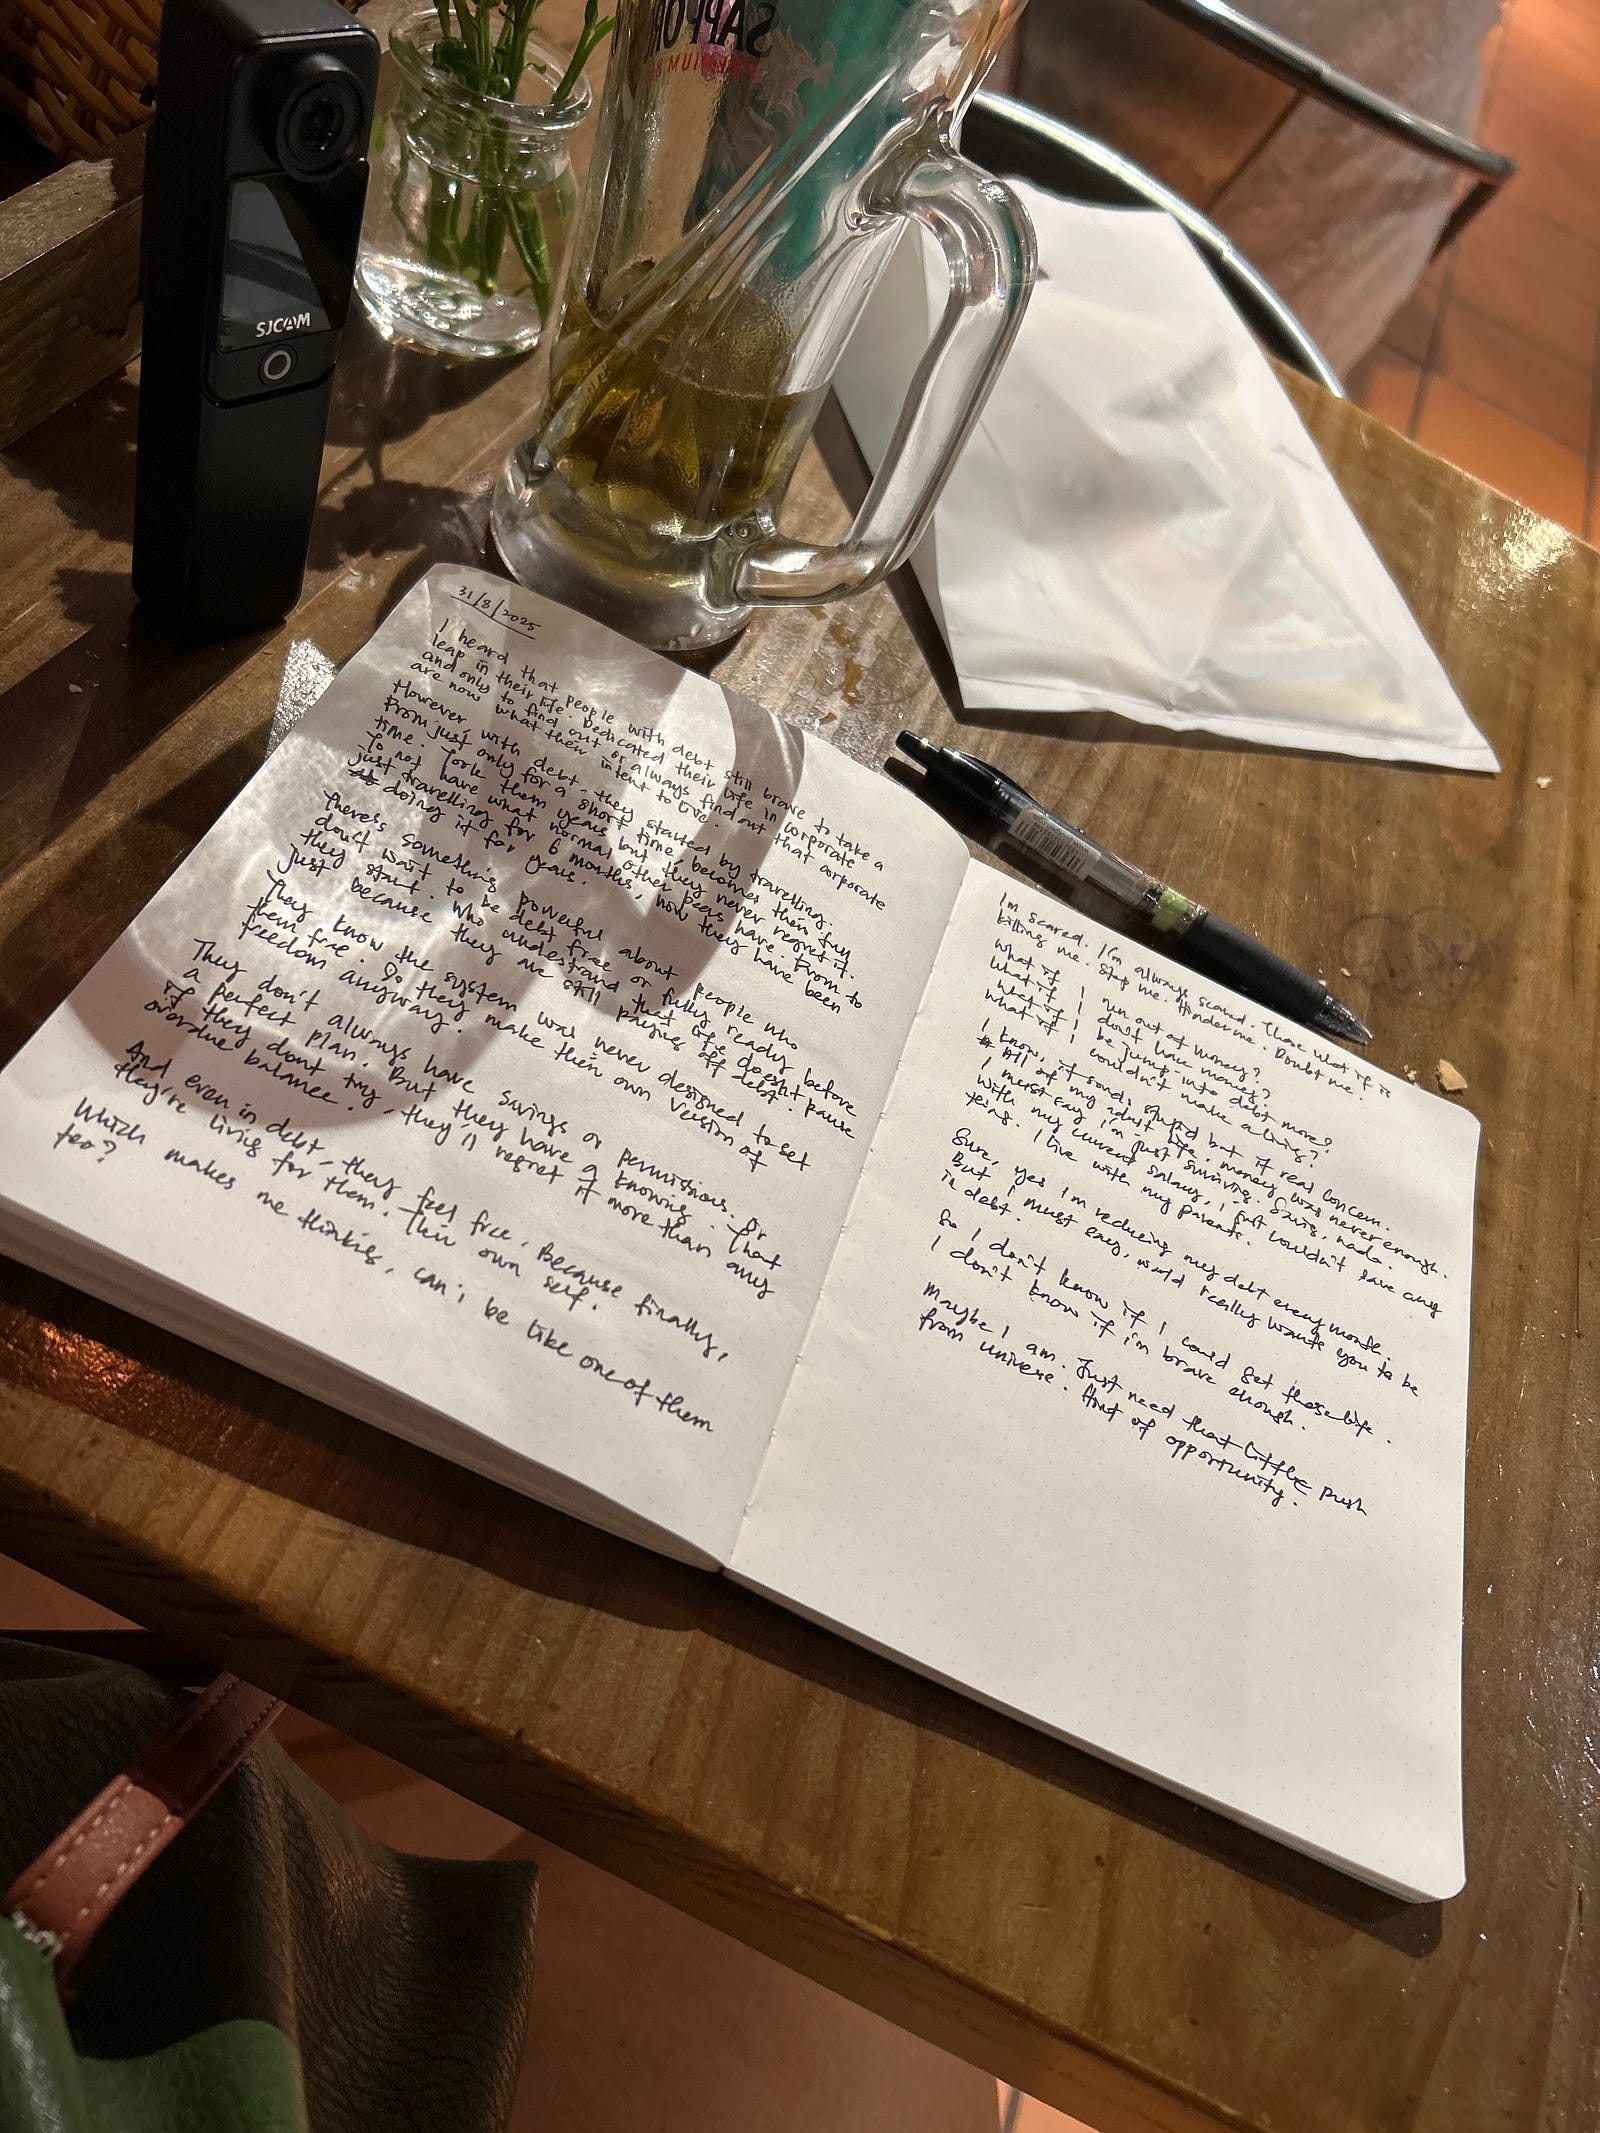 SAPPORO
PREMIUM
SJCAM
31/8/2025
I heard that people with debt still brave to take a
leap in their life. Dedicated their life in corporate
and only to find out or always find out that corporate
are now what their intent to live.
However, with debt, they started by travelling.
From just only for a short time, becomes their full
time. Took them years but they never regret it.
To not have what normal other peers have. From to
just travelling for 6 months, now they have been
doing it for years.
Theres something powerful about people who
don't wait to be debt free or fully ready before
they start. Who understand that life doesn't pause
just because they are still paying off debt.
They know the system was never designed to set
them free. So they make their own version of
freedom anyway.
They don't always have savings or permissions. Or
a perfect plan. But they have a knowing. That
if they dont try, they'll regret it more than any
overdue balance.
And even in debt, they feel free. Because finally,
they're living for them. Their own self.
Which makes me thinking, can i be like one of them
too?
I'm scared. I'm always scared. Those what if is
killing me. Stop me. Hinder me. Doubt me.
What if I run out of money?
What if I don't have money?
What if I be jump into debt more?
What if I couldn't make a living?
I know, it sound stupid but it real concern.
All of my adult life, money was never enough.
I must say I'm just surviving. Savings, nada.
With my current salary, I just couldn't save any
thing. I live with my parents.
Sure, yes I'm reducing my debt every month.
But I must say, world really wants you to be
in debt.
So I don't know if I could get those life.
I don't know if i'm brave enough.
Maybe I am. Just need that little push
from universe. Hint of opportunity.